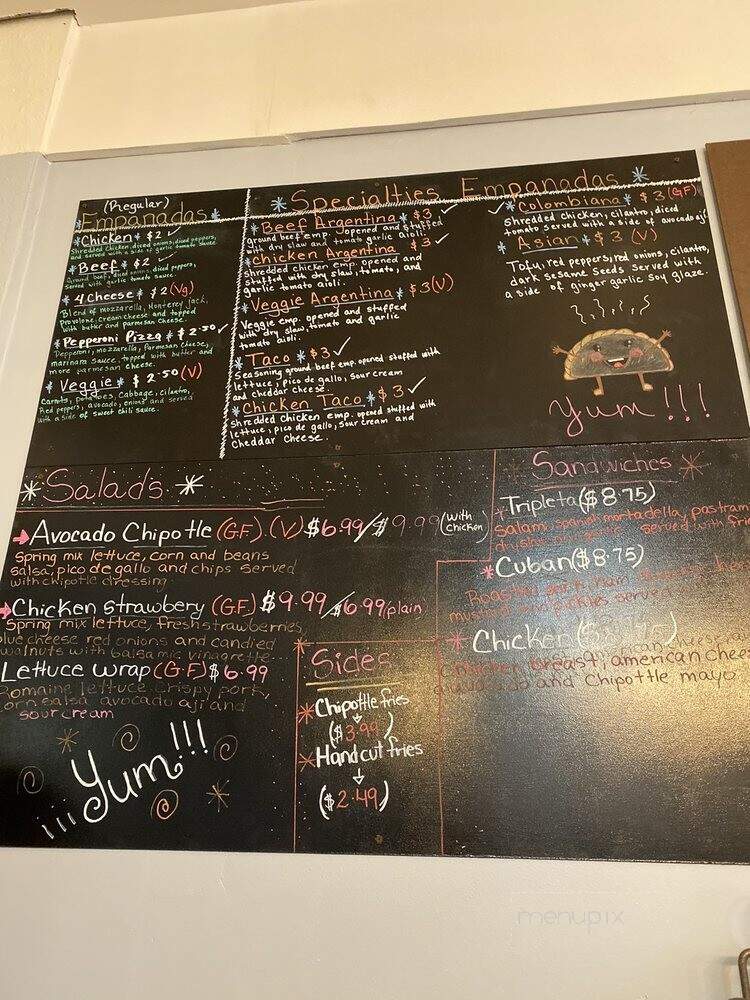 (Regular)
Empanadas
Chicken $2
Shredded Chicken, diced onions, diced peppers,
and served with a side of garlic tomato sauce
Beef $2
Ground beef, diced onions, diced peppers,
Served with garlic tomato sauce.
4 Cheese $2 (Vg)
Blend of mozzarella, Monterey Jack,
Provolone, cream cheese and topped
with butter and parmesan cheese.
Pepperoni Pizza $2.50
Pepperoni, mozzarella, Parmesan cheese,
marinara sauce, topped with butter and
more parmesan cheese.
Veggie $2.50 (V)
Carrots, potatoes, Cabbage, cilantro,
Red peppers, avocado, onions and served
with a side of sweet chili sauce.
Specialties Empanadas
Beef Argentina $3
ground beef emp. opened and stuffed
with dry slaw and tomato garlic aioli.
Chicken Argentina $3
shredded chicken emp. opened and
stuffed with dry slaw, tomato, and
garlic tomato aioli.
Veggie Argentina $3 (V)
Veggie emp. opened and stuffed
with dry slaw, tomato and garlic
tomato aioli.
Taco $3
Seasoning ground beef emp. opened stuffed with
lettuce, pico de gallo, sour cream
and cheddar cheese.
Chicken Taco $3
Shredded chicken emp. opened stuffed with
lettuce, pico de gallo, sour cream and
Cheddar Cheese.
Colombiana $3 (GF)
Shredded chicken, cilantro, diced
tomato served with a side of avocado aji
Asian $3 (V)
Tofu, red peppers, red onions, cilantro,
dark sesame seeds served with
a side of ginger garlic soy glaze.
Yum!!!
Salads
Avocado Chipotle (G.F.) (V) $6.99/$9.99 (with chicken)
Spring mix lettuce, corn and beans
salsa, pico de gallo and chips served
with chipotle dressing
Chicken Strawbery (G.F.) $9.99/$6.99 (plain)
Spring mix lettuce, fresh strawberries,
blue cheese red onions and candied
walnuts with balsamic vinagrette
Lettuce wrap (G.F) $6.99
Romaine lettuce crispy pork,
corn salsa avocado aji and
sour cream
¡¡¡Yum!!!
Sides
Chipottle fries
($3.99)
Hand cut fries
($2.49)
Sandwiches
Tripleta ($8.75)
Salami, spanish mortadella, pastrami
served with fries
Cuban ($8.75)
Roasted pork, ham
mustard and pickles, served
Chicken
Chicken breast, american cheese
avocado and chipottle mayo
menupix